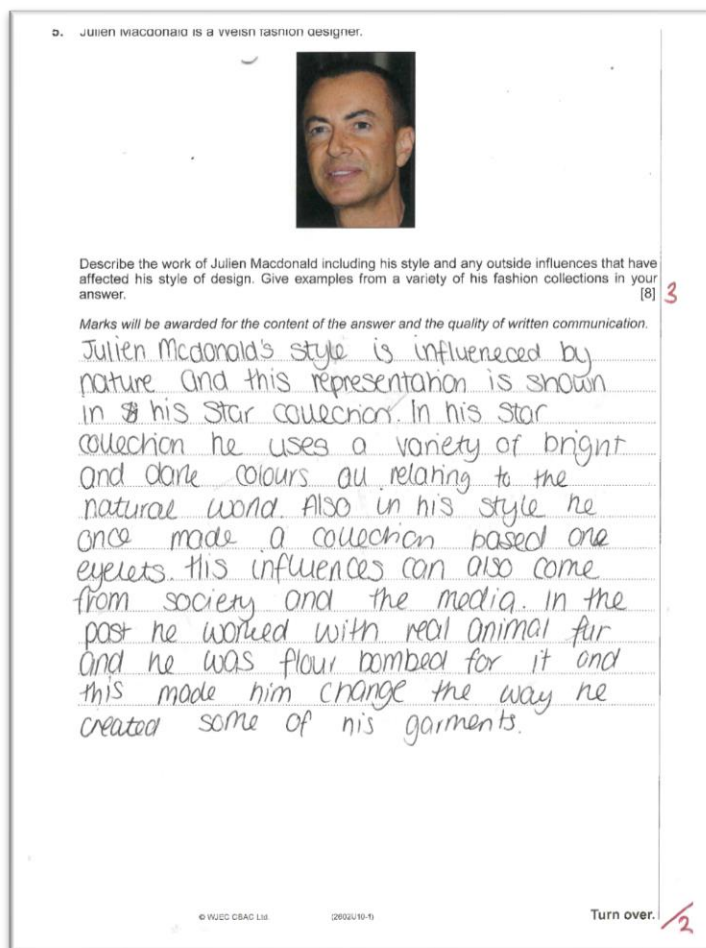 5. Julien Macdonald is a Welsh fashion designer.
Describe the work of Julien Macdonald including his style and any outside influences that have
affected his style of design. Give examples from a variety of his fashion collections in your
answer. [8] 3
Marks will be awarded for the content of the answer and the quality of written communication.
Julien Mcdonald's style is influeneced by
nature and this representation is shown
in his star collection. In his star
collection he uses a variety of bright
and dark colours all relating to the
natural world. Also in his style he
once made a collection based one
eyelets. His influences can also come
from society and the media. In the
past he worked with real animal fur
and he was flour bombed for it and
this made him change the way he
created some of his garments.
© WJEC CBAC Ltd. (2602U10-1) Turn over. /2